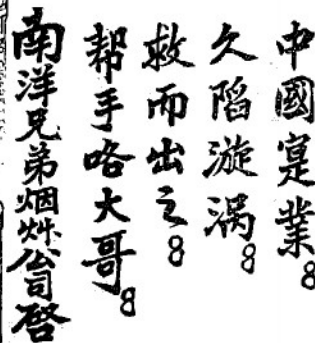 中國寔業8
久陷漩涡8
救而出之8
帮手咯大哥8
南洋兄弟烟艸公司啓